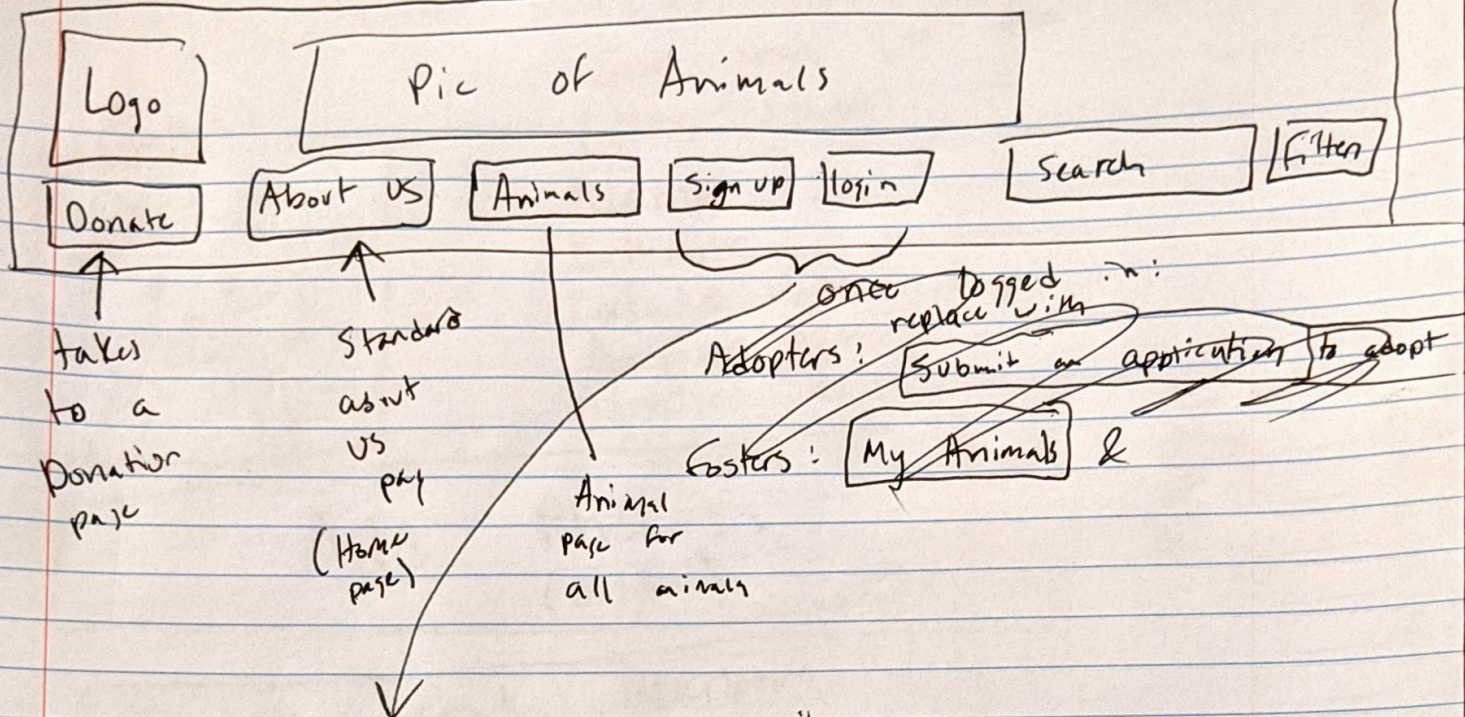 Logo
Pic of Animals
Donate
About US
Animals
Sign up
login
Search
Filter
takes
to a
Donation
page
Standard
about
US
pag
(Home
page)
Animal
page for
all animals
once logged in:
replace with
Adopters: Submit an application to adopt
Fosters: My Animals &